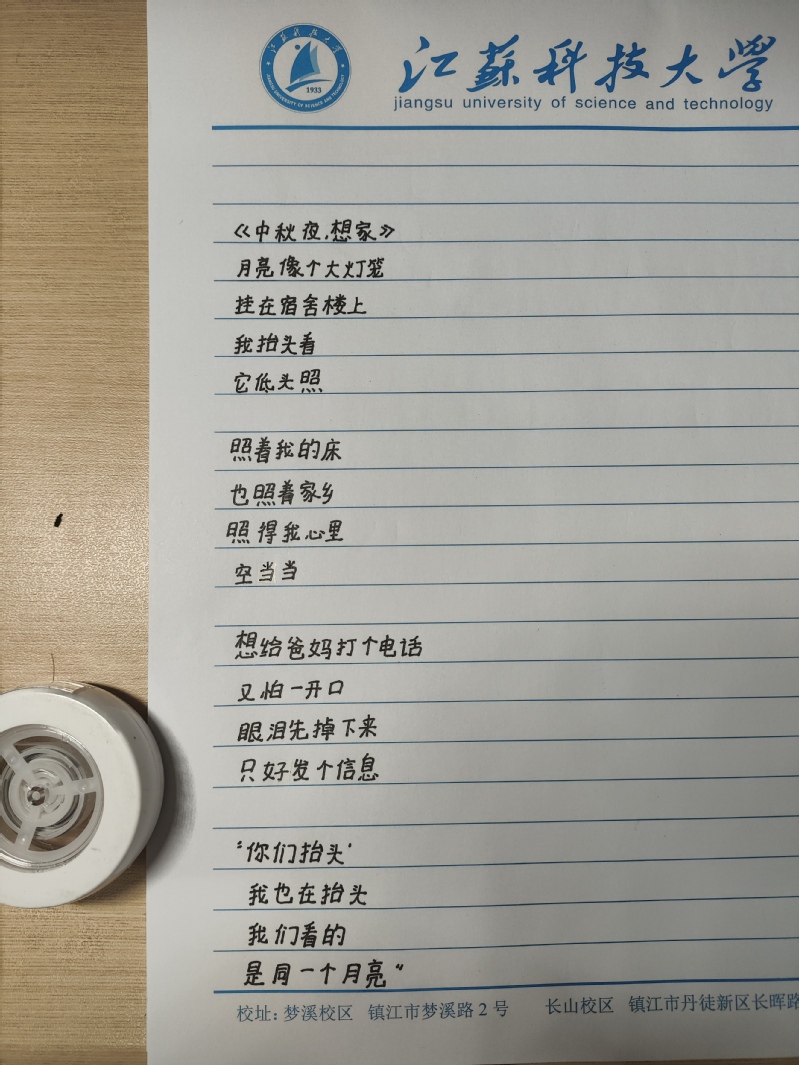 江苏科技大学
JIANGSU UNIVERSITY OF SCIENCE AND TECHNOLOGY
1933
江蘇科技大学
jiangsu university of science and technology
《中秋夜,想家》
月亮像个大灯笼
挂在宿舍楼上
我抬头看
它低头照
照着我的床
也照着家乡
照得我心里
空当当
想给爸妈打个电话
又怕一开口
眼泪先掉下来
只好发个信息
“你们抬头'
我也在抬头
我们看的
是同一个月亮“
校址:梦溪校区 镇江市梦溪路2号 长山校区 镇江市丹徒新区长晖路